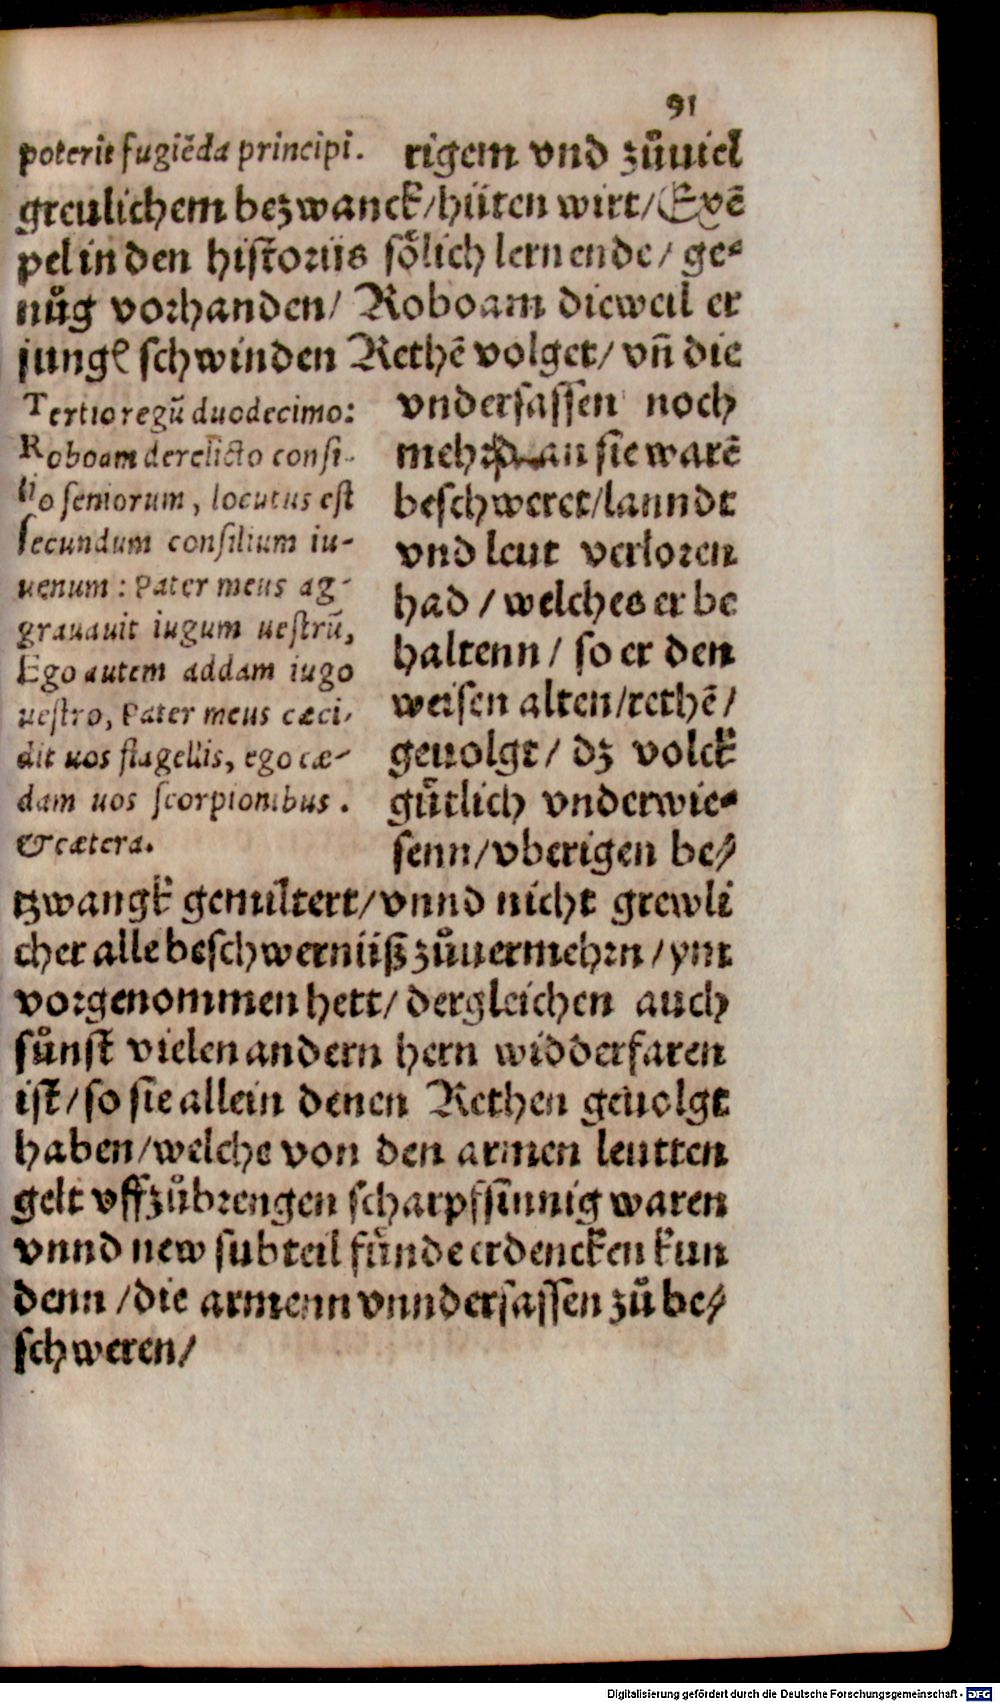 91
poterit fugiēda principi.
rigem vnd zůuiel
greulichem bezwanck/hüten wirt/Exē
pel in den historiis sőlich lernende/ ge⸗
nůg vorhanden/ Roboam dieweil er
schwinden Rethē volget/ vn̄ die
Tertio regū duodecimo:
Roboam derelicto consi-
lio seniorum, locutus est
secundum consilium iu-
uenum: Pater meus ag-
grauauit iugum uestrū,
Ego autem addam iugo
uestro, Pater meus cæci-
dit uos flagellis, ego cæ-
dam uos scorpionibus.
& cætera.
vndersassen noch
an sie warē
beschweret/lanndt
vnd leut verloren
had / welches er be
haltenn/ so er den
weisen alten/rethē/
geuolgt/ dz volck
gütlich vnderwie⸗
senn/vberigen be⸗
tzwangk gemiltert/vnnd nicht grewli
cher alle beschwernüß zůuermehrn/ym
vorgenommen hett/ dergleichen auch
sůnst vielen andern hern widderfaren
ist/so sie allein denen Rethen geuolgt
haben/welche von den armen leutten
gelt vffzůbrengen scharpfsinnig waren
vnnd new subteil fünde erdencken kun
denn /die armenn vnndersassen zů be⸗
schweren/
Digitalisierung gefördert durch die Deutsche Forschungsgemeinschaft - DFG